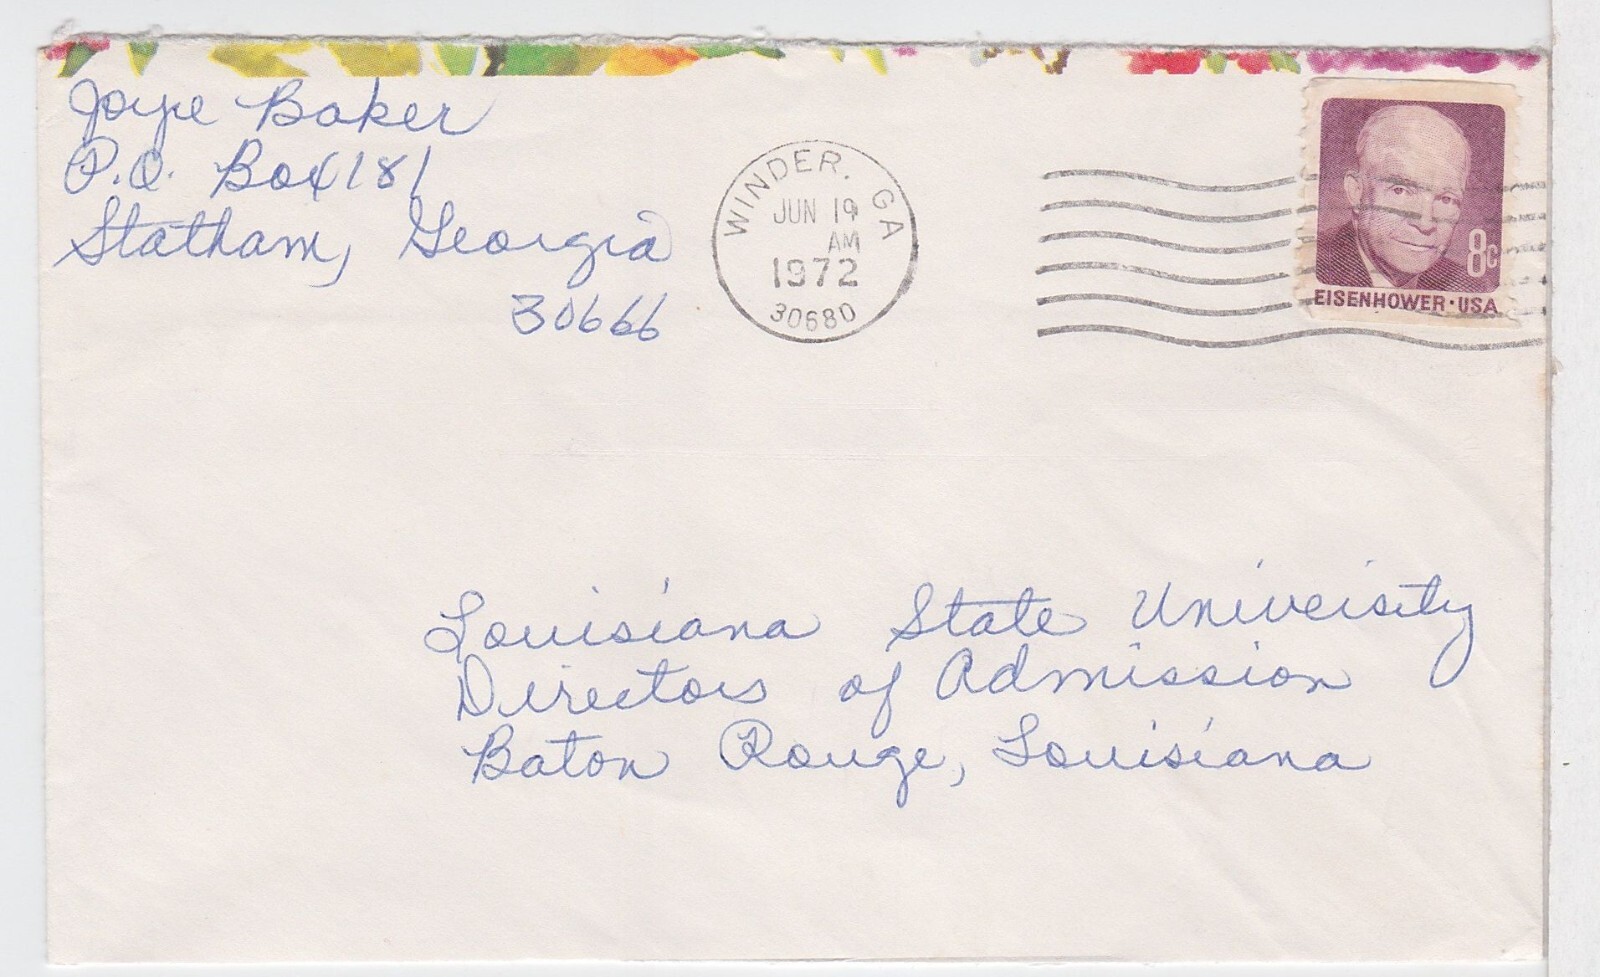 Joye Baker
P.O. Box 181
Statham, Georgia
30666
WINDER, GA
JUN 19
AM
1972
30680
8c
EISENHOWER·USA
Louisiana State University
Directors of Admission
Baton Rouge, Louisiana